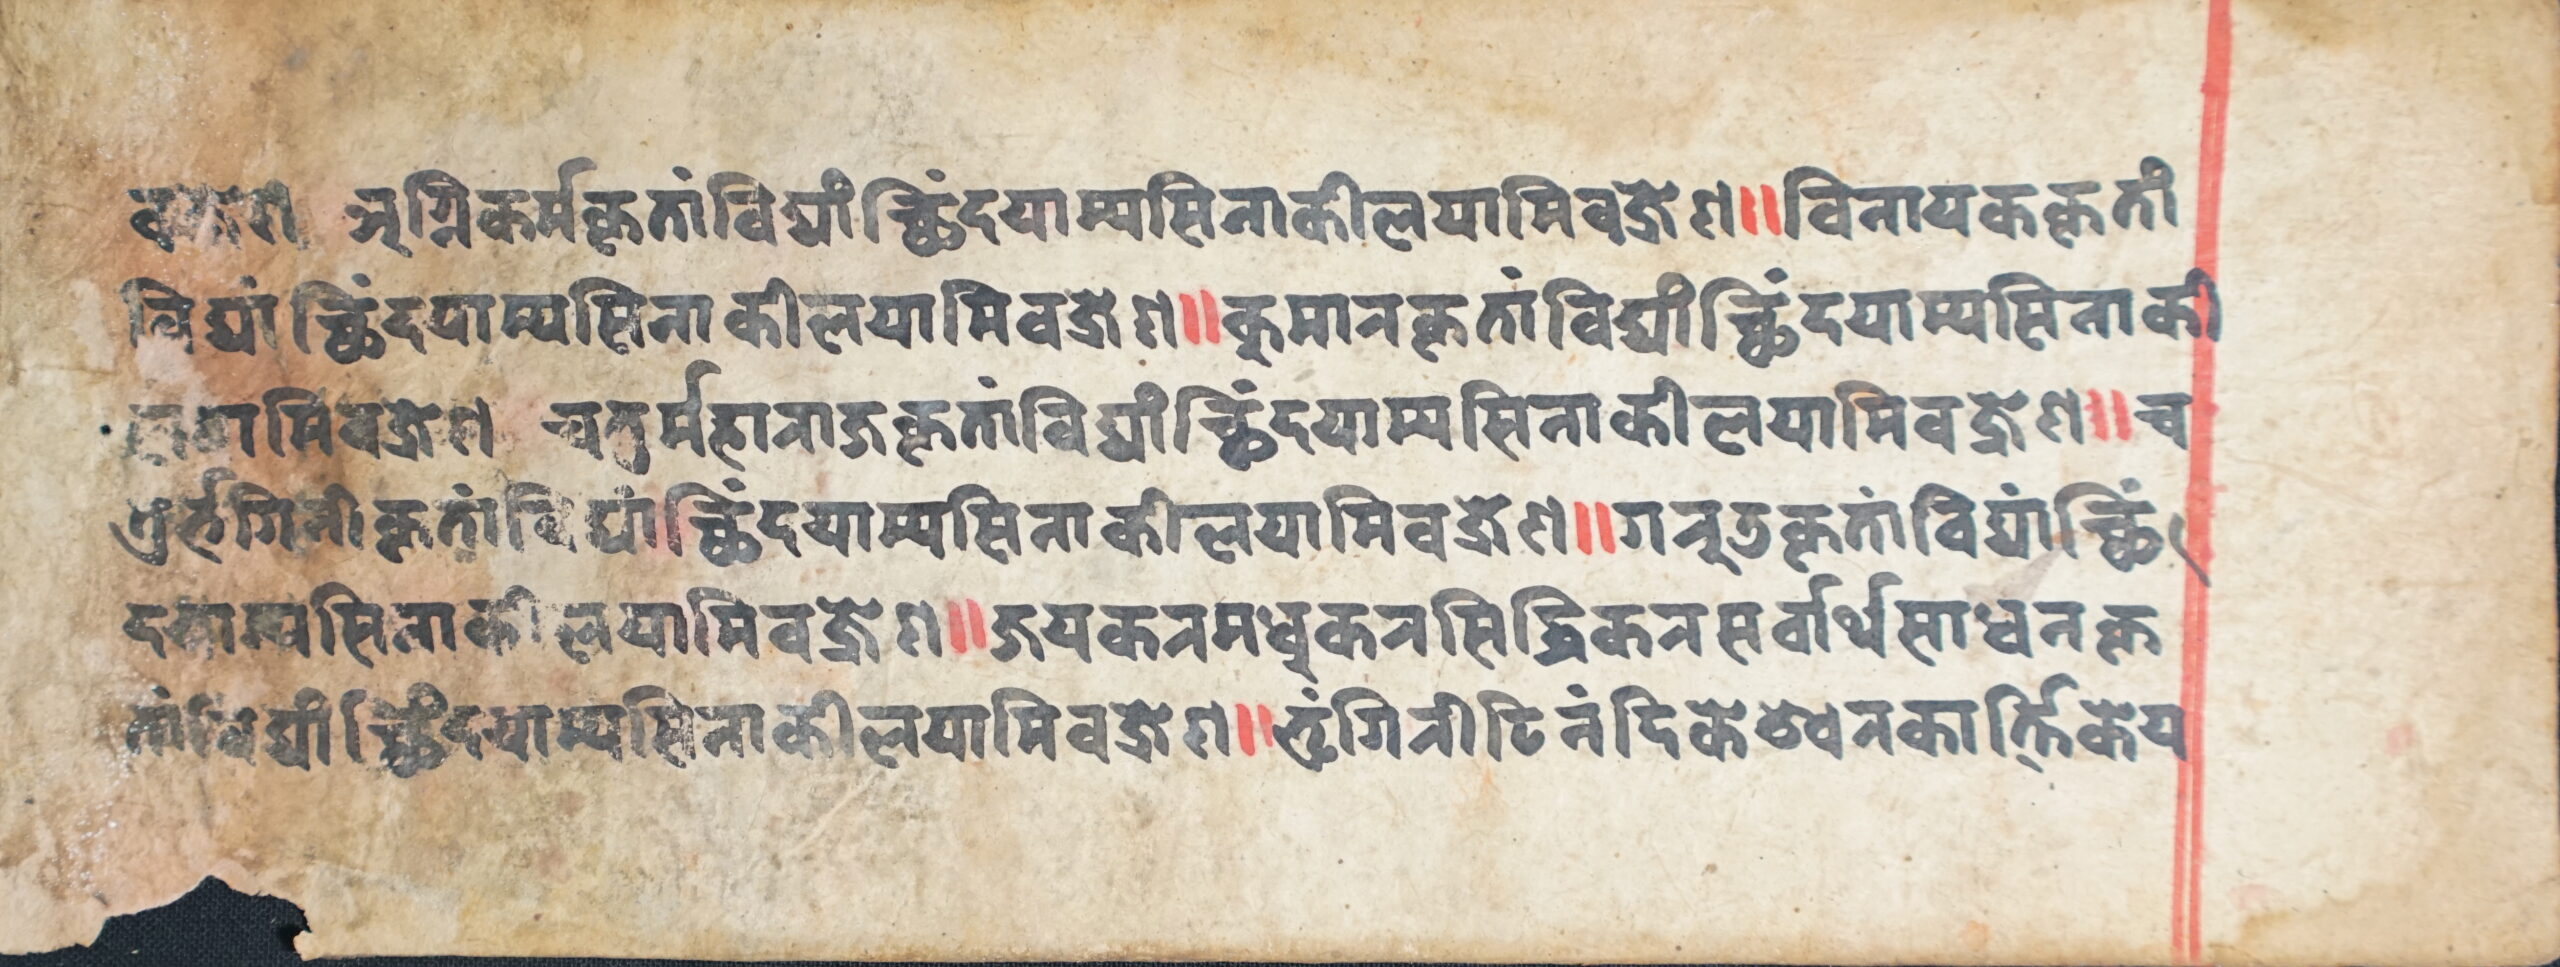 वज्रेण अग्निकर्मकृतां विद्यां च्छिंदयाम्यसिना कीलयामि वज्रेण॥ विनायककृतां
विद्यां च्छिंदयाम्यसिना कीलयामि वज्रेण॥ कुमारकृतां विद्यां च्छिंदयाम्यसिना की
लयामि वज्रेण चतुर्महाराजकृतां विद्यां च्छिंदयाम्यसिना कीलयामि वज्रेण॥ च
तुर्भगिनीकृतां विद्यां च्छिंदयाम्यसिना कीलयामि वज्रेण॥ गरुडकृतां विद्यां च्छिं
दयाम्यसिना कीलयामि वज्रेण॥ जयकरमधुकरसिद्धिकरसर्वार्थसाधनकृ
तां विद्यां च्छिंदयाम्यसिना कीलयामि वज्रेण॥ भृंगिरीटिनंदिकेश्वरकार्त्तिकेय